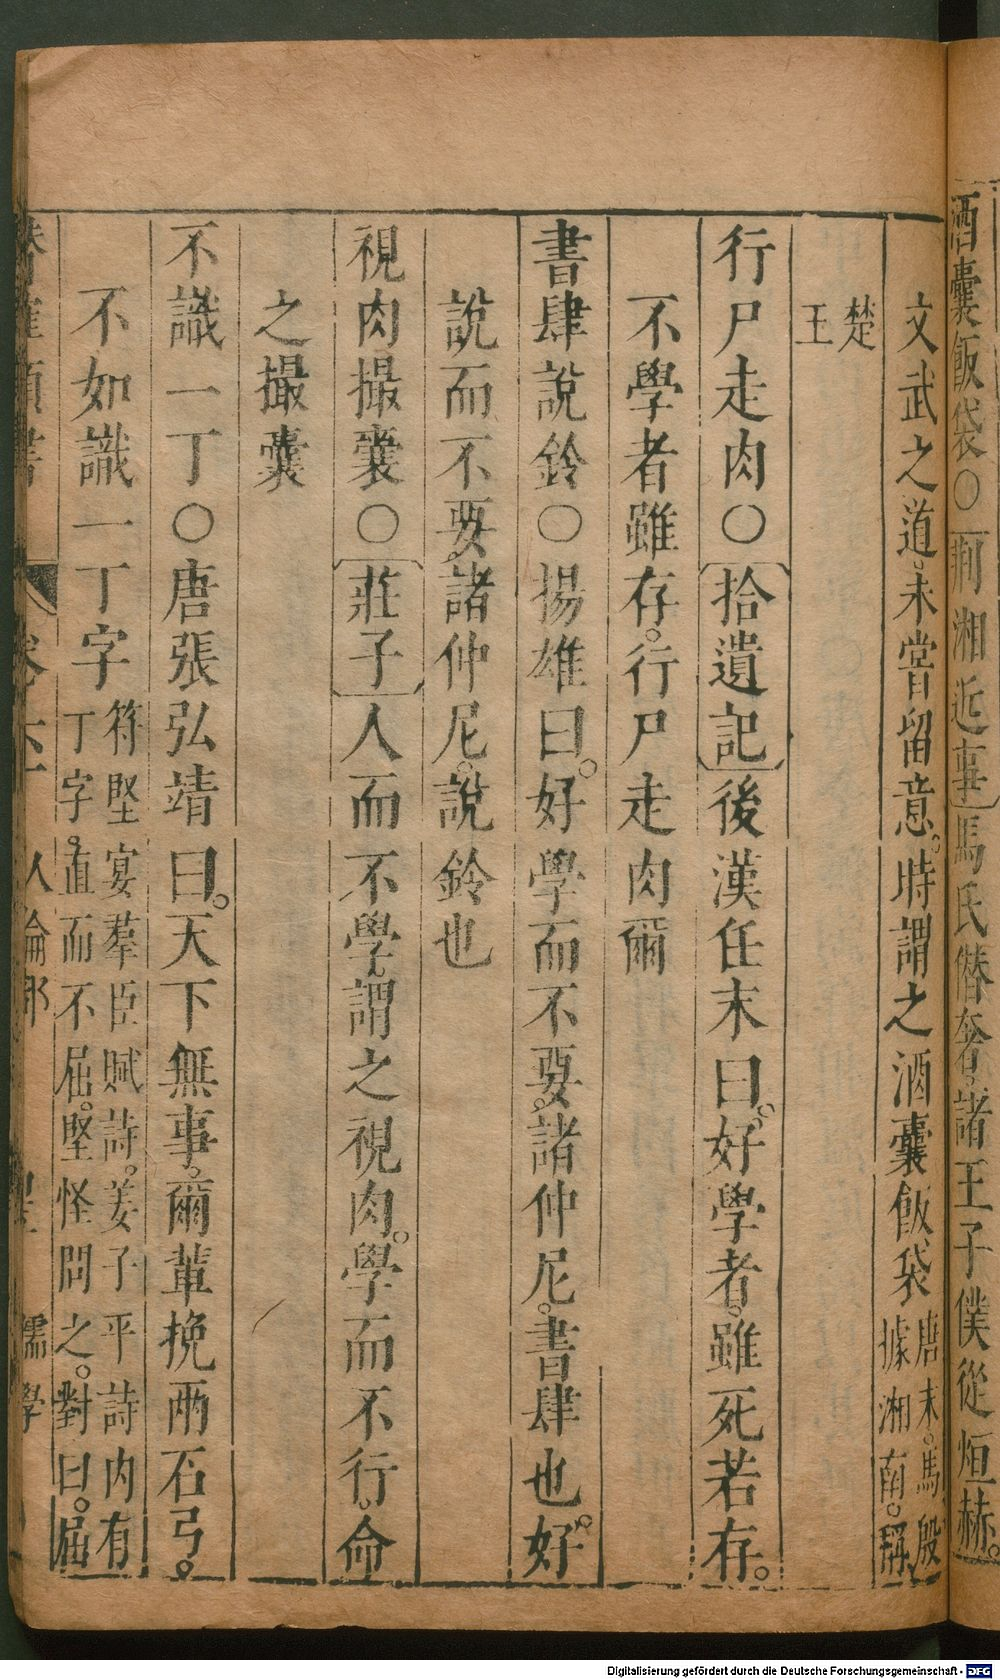 酒囊飯袋○荆湘近事馬氏僣奢。諸王子僕從烜赫。
文武之道。未嘗留意。時謂之酒囊飯袋唐末。馬殷據湘南。稱
楚王
行尸走肉○拾遺記後漢任末曰。好學者。雖死若存。
不學者雖存。行尸走肉爾
書肆說鈴○揚雄曰。好學而不要。諸仲尼。書肆也。好
說而不要。諸仲尼。說鈴也
視肉撮囊○莊子人而不學。謂之視肉。學而不行。命
之撮囊
不識一丁○唐張弘靖曰。天下無事。爾輩挽兩石弓。
不如識一丁字符堅宴羣臣賦詩。姜子平詩內有丁字。直而不屈。堅怪問之。對曰。屈
卷六 人倫部 儒學
Digitalisierung gefördert durch die Deutsche Forschungsgemeinschaft - DFG